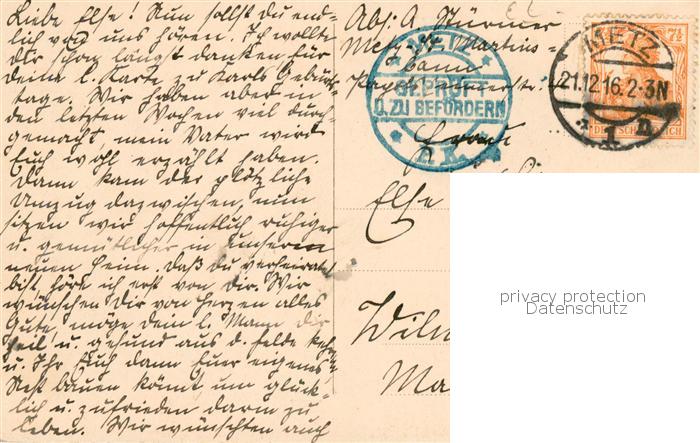 Liebe Else! Nun sollst du end-
lich von uns hören. Ich wollte
Dir schon längst danken für
deine l. Karte zu Karls Geburts-
tage. Wir haben aber in
den letzten Wochen viel durch-
gemacht, mein Vater wird
Euch wohl erzählt haben.
Dann kam der plötzliche
Umzug dazwischen, nun
sitzen wir hoffentlich ruhiger
u. gemütlicher in unserm
neuen Heim. Daß du verheiratet
bist, hörte ich erst von dir. Wir
wünschen Dir von Herzen alles
Gute, möge dein l. Mann dir
heil u. gesund aus d. Felde keh-
u. Ihr Euch dann Euer eigenes
Nest bauen könnt, um glück-
lich u. zufrieden darin zu
leben. Wir wünschten auch
Abs: A. Stürmer
Metz-St. Martins-
bann
GEPRÜFT
U. ZU BEFÖRDERN
P. K.
METZ
21.12.16.2-3N
* 1 n
7½
DEUTSCHES REICH
Frau
Else
Wil
Ma
privacy protection
Datenschutz